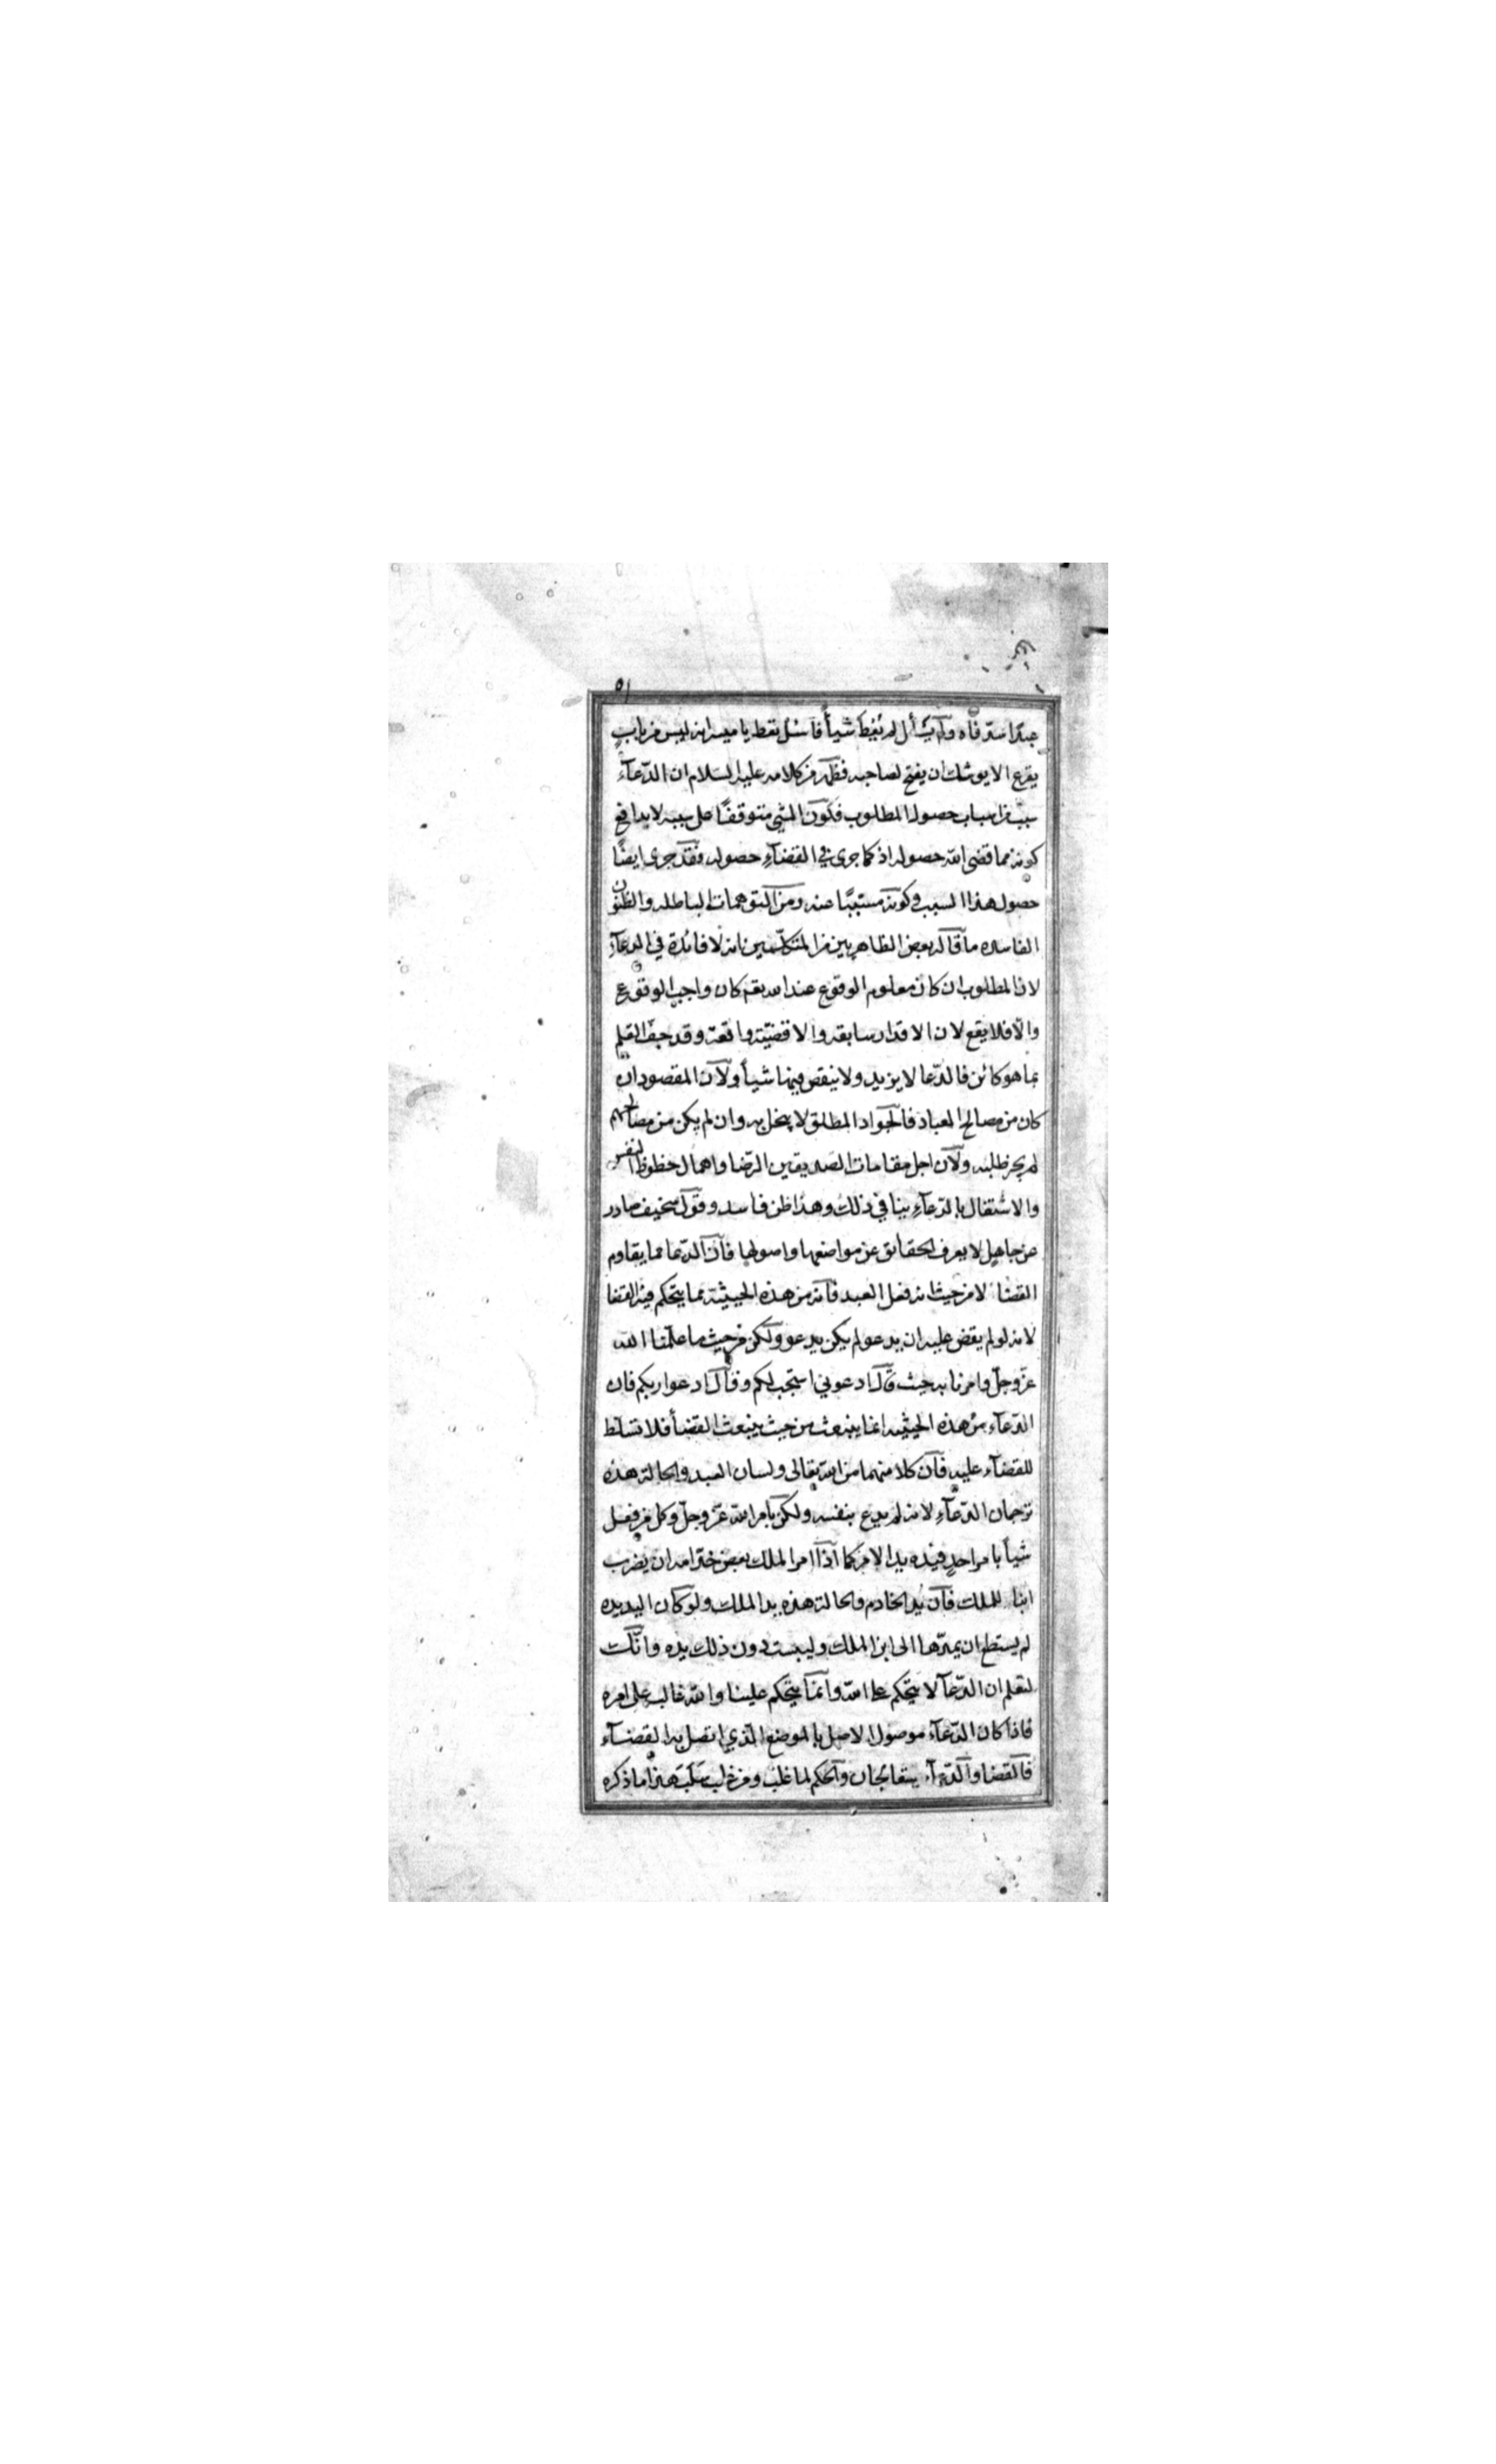 ٥١
عبدا سد فاه ولم يسأل لم يعط شيأ فاسئل تعط يا ميسر انه ليس من باب
يقرع الا يوشك ان يفتح لصاحبه فظهر من كلامه عليه السلام ان الدعآء
سبب من اسباب حصول المطلوب فكون الشئ متوقفا على سببه لا يدافع
كونه مما قضى الله حصوله اذ كما جرى في القضآء حصوله فقد جرى ايضا
حصول هذا السبب وكونه مستببا عنه ومن التوهمات الباطله والظنون
الفاسده ما قاله بعض الظاهريين من المتكلمين بانه لا فائدة في الدعآء
لان المطلوب ان كان معلوم الوقوع عند الله تعم كان واجب الوقوع
والا فلا يقع لان الاقدار سابقه والاقضية واقعة وقد جف القلم
بما هو كائن فالدعا لا يزيد ولا ينقص فيها شيأ ولان المقصود ان
كان من مصالح العباد فالجواد المطلق لا يبخل به وان لم يكن من مصالحهم
لم يجز طلبه ولان اجل مقامات الصديقين الرضا واهمال حظوظ النفس
والاشتغال بالدعآء ينافي ذلك وهذا ظن فاسد وقول سخيف صادر
عن جاهل لا يعرف الحقائق عن مواضعها واصولها فان الدعا مما يقاوم
القضا لا من حيث انه فعل العبد فانه من هذه الحيثية مما يتحكم فيه القضا
لانه لو لم يقض عليه ان يدعو لم يكن يدعو ولكن من حيث ما علمنا الله
عز وجل وامرنا به حيث قال ادعوني استجب لكم وقال ادعوا ربكم فان
الدعآء من هذه الحيثيه انما ينبعث من حيث ينبعث القضأ فلا تسلط
للقضآء عليه فان كلا منهما من الله تعالى ولسان العبد والحالة هذه
ترجمان الدعآء لانه لم يدع بنفسه ولكن بامر الله عز وجل وكل من فعل
شيأ بامر احد فيده يد الامر كما اذا امر الملك بعض خدامه ان يضرب
ابنا للملك فان يد الخادم والحالة هذه يد الملك ولو كان اليد يده
لم يستطع ان يمدها الى ابن الملك وليبست دون ذلك يده وانك
لتعلم ان الدعآ لا يتحكم على الله وانما يتحكم علينا والله غالب على امره
فاذا كان الدعآء موصول الاصل بالموضع الذي اتصل به القضآء
فالقضا والدعآء يتعالجان والحكم لما غلب ومن غلب سلب هذا ما ذكره